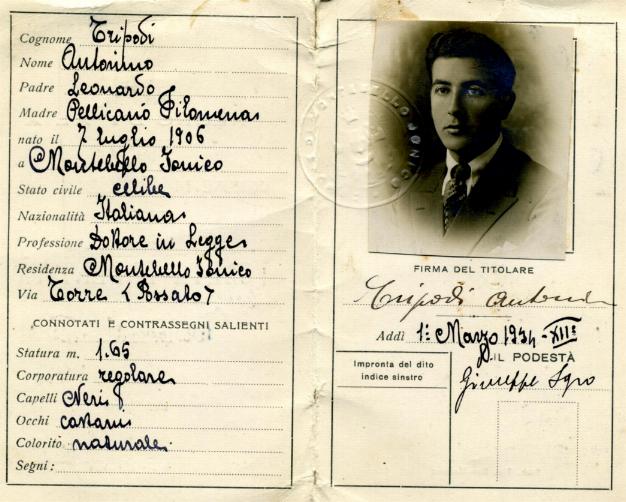 Cognome Tripodi
Nome Antonino
Padre Leonardo
Madre Pellicanò Filomena
nato il 7 luglio 1906
a Montebello Jonico
Stato civile celibe
Nazionalità Italiana
Professione Dottore in Legge
Residenza Montebello Jonico
Via Torre (Fossato)
CONNOTATI E CONTRASSEGNI SALIENTI
Statura m. 1.65
Corporatura regolare
Capelli Neri
Occhi castani
Colorito naturale
Segni:
MONTEBELLO JONICO
FIRMA DEL TITOLARE
Tripodi Antonino
Addì 1: Marzo 1934-XIIº
IL PODESTÀ
Giuseppe Sgro
Impronta del dito
indice sinstro